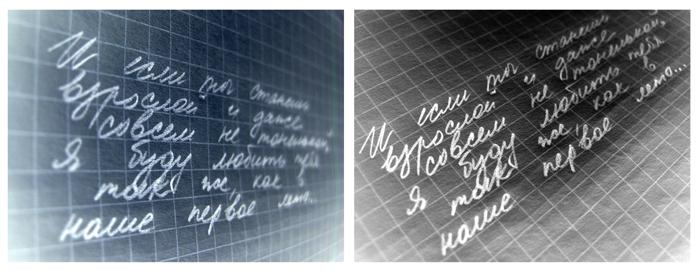 И если ты станешь
взрослой и даже
совсем не тоненькой,
Я буду любить тебя
так же, как в
наше первое лето...
И если ты станешь
взрослой и даже
совсем не тоненькой,
Я буду любить тебя
так же, как в
наше первое лето...